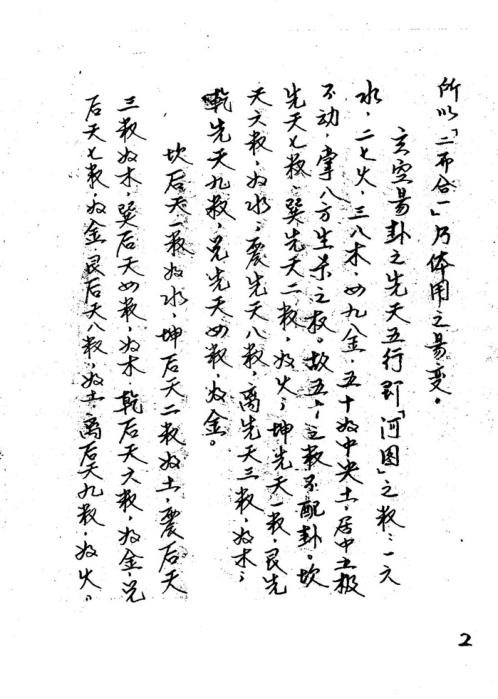 所以「二而合一」乃体用之易变。
玄空易卦之先天五行即「河图」之数：一六
水，二七火，三八木，四九金，五十为中央土，居中立极
不动，掌八方生杀之权。故五、十之数不配卦。坎
先天七数，巽先天二数，为火；坤先天一数，艮先
天六数，为水；震先天八数，离先天三数，为木；
乾先天九数，兑先天四数，为金。
坎后天一数为水，坤后天二数为土，震后天
三数为木，巽后天四数，为木，乾后天六数，为金，兑
后天七数，为金，艮后天八数，为土，离后天九数，为火。
2